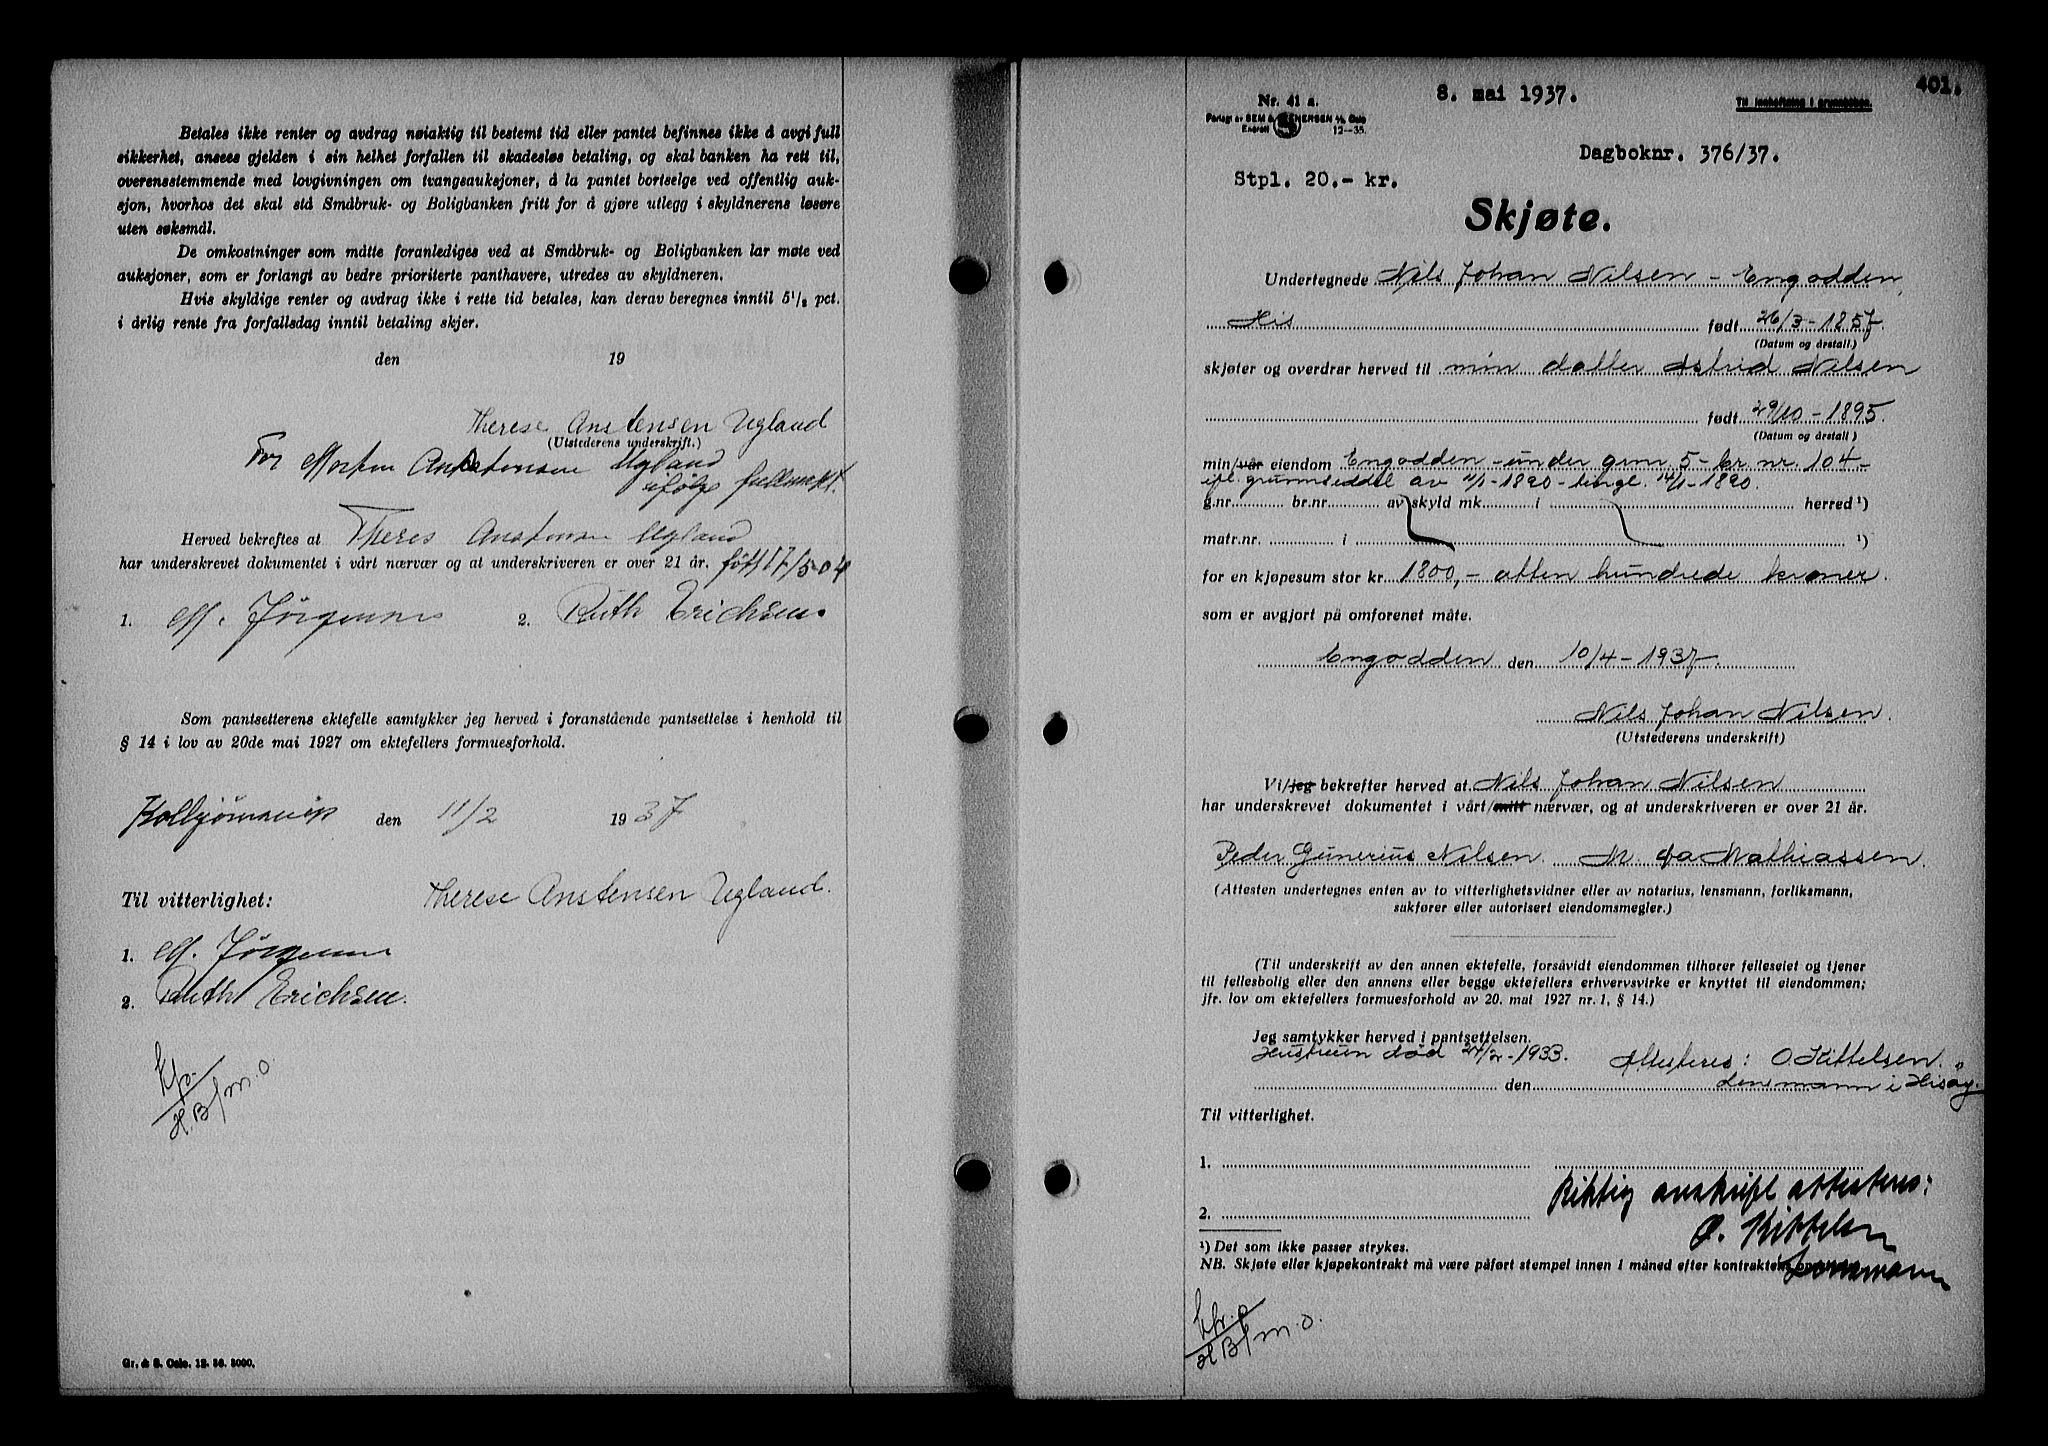 Betales ikke renter og avdrag nøiaktig til bestemt tid eller pantet befinnes ikke å avgi full
sikkerhet, ansees gjelden i sin helhet forfallen til skadesløs betaling, og skal banken ha rett til,
overensstemmende med lovgivningen om tvangsauksjoner, å la pantet bortselge ved offentlig auk-
sjon, hvorhos det skal stå Småbruk- og Boligbanken fritt for å gjøre utlegg i skyldnerens løsøre
uten søksmål.
De omkostninger som måtte foranlediges ved at Småbruk- og Boligbanken lar møte ved
auksjoner, som er forlangt av bedre prioriterte panthavere, utredes av skyldneren.
Hvis skyldige renter og avdrag ikke i rette tid betales, kan derav beregnes inntil 5 1/2 pct.
i årlig rente fra forfallsdag inntil betaling skjer.
den 19
Therese Anstensen Ugland
(Utstederens underskrift.)
For Morten Anstensen Ugland
ifølge fullmakt.
Herved bekreftes at Theres Anstensen Ugland
har underskrevet dokumentet i vårt nærvær og at underskriveren er over 21 år. født 17/5-04
1. M. Jørgensen 2. Ruth Erichsen.
Som pantsetterens ektefelle samtykker jeg herved i foranstående pantsettelse i henhold til
§ 14 i lov av 20de mai 1927 om ektefellers formuesforhold.
den 11/2 1937
Til vitterlighet: Therese Anstensen Ugland.
1. M. Jørgensen
2. Ruth Erichsen.
H.B/m.o
Gr. & S. Oslo. 12. 36. 3000.
401.
8. mai 1937.
Nr. 41 a.
Til innheftning i grunnboken.
12--35.
Dagboknr. 376/37.
Stpl. 20.- kr.
Skjøte.
Undertegnede Nils Johan Nilsen - Engodden,
His født 26/3-1857.
(Datum og årstall.)
skjøter og overdrar herved til min datter Astrid Nilsen
født 29/10-1895.
(Datum og årstall)
min/vår eiendom Engodden - under grnn 5 - br nr. 104 -
ifl. grunnseddel av 11/1-1890 - tingl. 14/1-1890.
g.nr. br.nr. av skyld mk. i herred ¹)
matr.nr. i ¹)
for en kjøpesum stor kr. 1800,- atten hundrede kroner.
som er avgjort på omforenet måte.
Engodden den 10/4-1937.
Nils Johan Nilsen.
(Utstederens underskrift)
Vi/jeg bekrefter herved at Nils Johan Nilsen
har underskrevet dokumentet i vårt/mitt nærvær, og at underskriveren er over 21 år.
Peder Gunerius Nilsen. M. Mathiassen.
(Attesten undertegnes enten av to vitterlighetsvidner eller av notarius, lensmann, forliksmann,
sakfører eller autorisert eiendomsmegler.)
(Til underskrift av den annen ektefelle, forsåvidt eiendommen tilhører felleseiet og tjener
til fellesbolig eller den annens eller begge ektefellers erhvervsvirke er knyttet til eiendommen;
jfr. lov om ektefellers formuesforhold av 20. mai 1927 nr. 1, § 14.)
Jeg samtykker herved i pantsettelsen.
Hustruen død 24/2-1933. Attesteres: O. Kittelsen.
den Lensmann i Hisøy.
Til vitterlighet.
1.
Riktig avskrift attesteres:
2.
O. Kittelsen
Lensmann
¹) Det som ikke passer strykes.
NB. Skjøte eller kjøpekontrakt må være påført stempel innen 1 måned efter kontraktens
H.B/m.o.